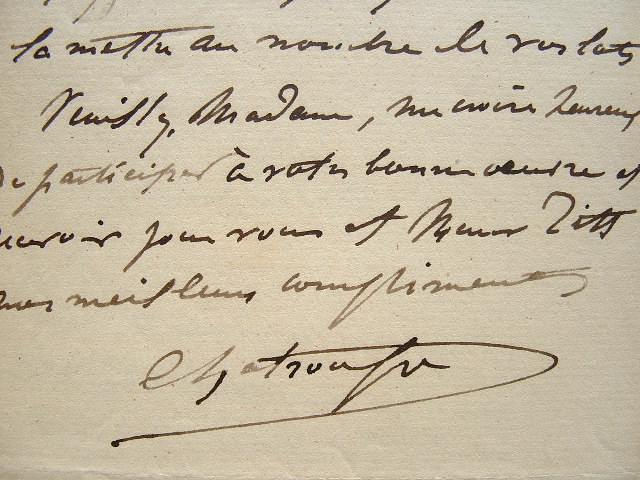 la mettre au nombre de vos lots
Veuillez, Madame, me croire heureux
de participer à votre bonne oeuvre et
recevoir pour vous et
mes meilleurs compliments
Chatrousse